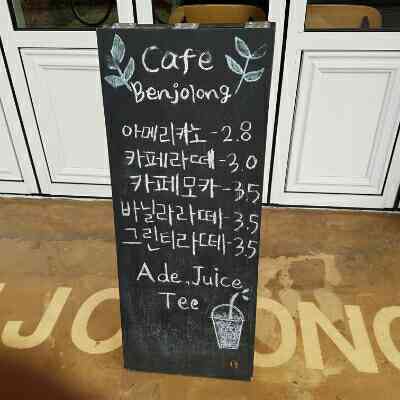 Cafe
Benjolong
아메리카노-2.8
카페라떼-3.0
카페모카-3.5
바닐라라떼-3.5
그린티라떼-3.5
Ade, Juice
Tee
JO ONG